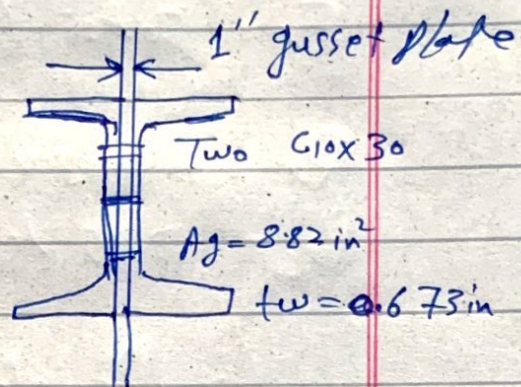 1" gusset plate
Two C10x30
Ag = 8.82 in²
tw = 0.673in